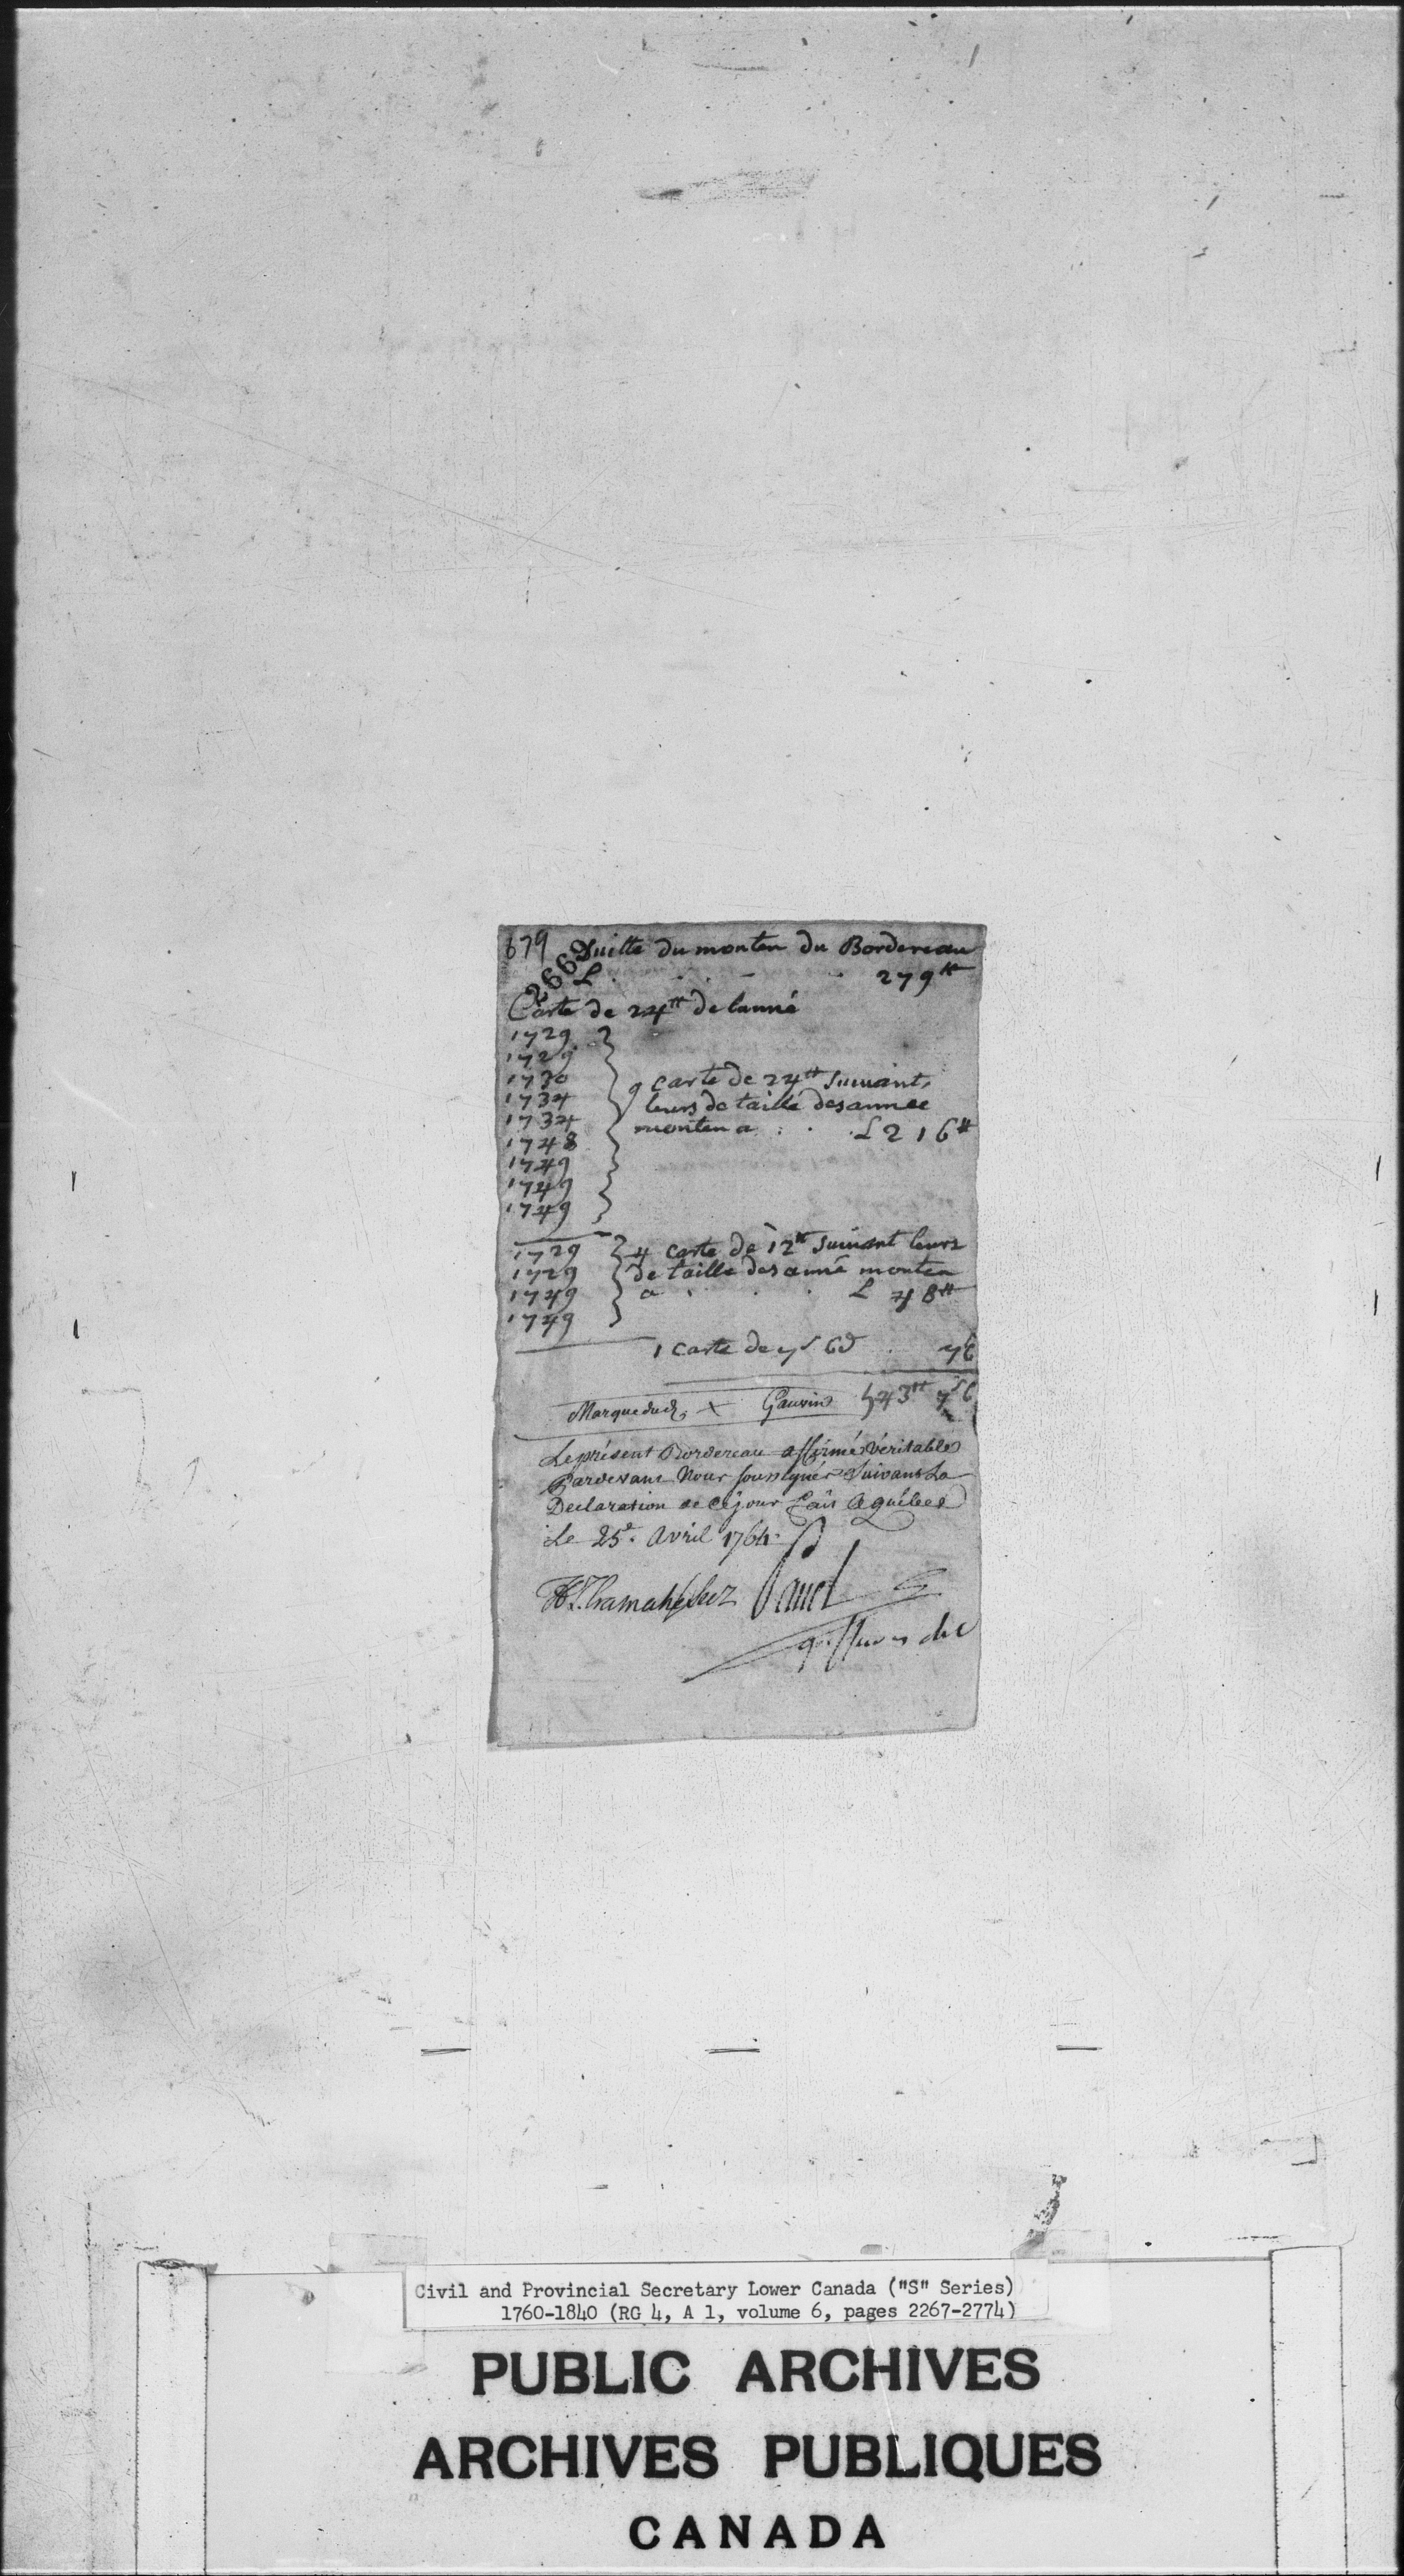 679 Suitte du monten du Bordereau
266
L . . . 279tt
Carte de 24tt de lanné
1729
1729
1730
1734
1734
1748
1749
1749
1749
9 carte de 24tt suivant
leurs de taille des année
monten a . . . L 216tt
1729
1729
1749
1749
4 carte de 12tt suivant leurs
de taille des anné monten
a . . . L 48tt
1 carte de 7s 6d . 7 6
Marque dud. X Gauvin 543tt 7s 6
Le présent Bordereau affirmé véritable
Pardevant Nous soussignés Suivant La
Declaration de cejour Fait A québec
Le 25e. Avril 1764
H T. Cramahé Panet
Civil and Provincial Secretary Lower Canada ("S" Series)
1760-1840 (RG 4, A 1, volume 6, pages 2267-2774)
PUBLIC ARCHIVES
ARCHIVES PUBLIQUES
CANADA